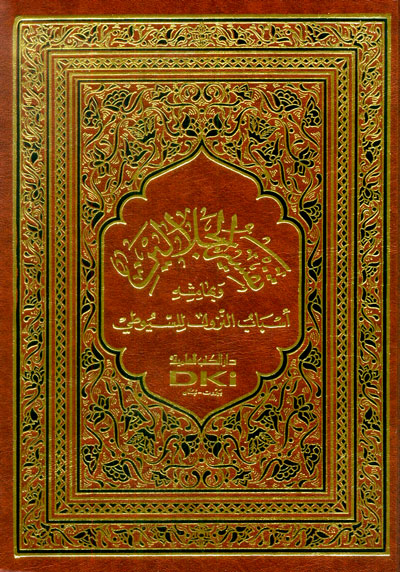 تفسير الجلالين
وبهامشه
أسباب النزول للسيوطي
دار الكتب العلمية
DKi
بيروت - لبنان